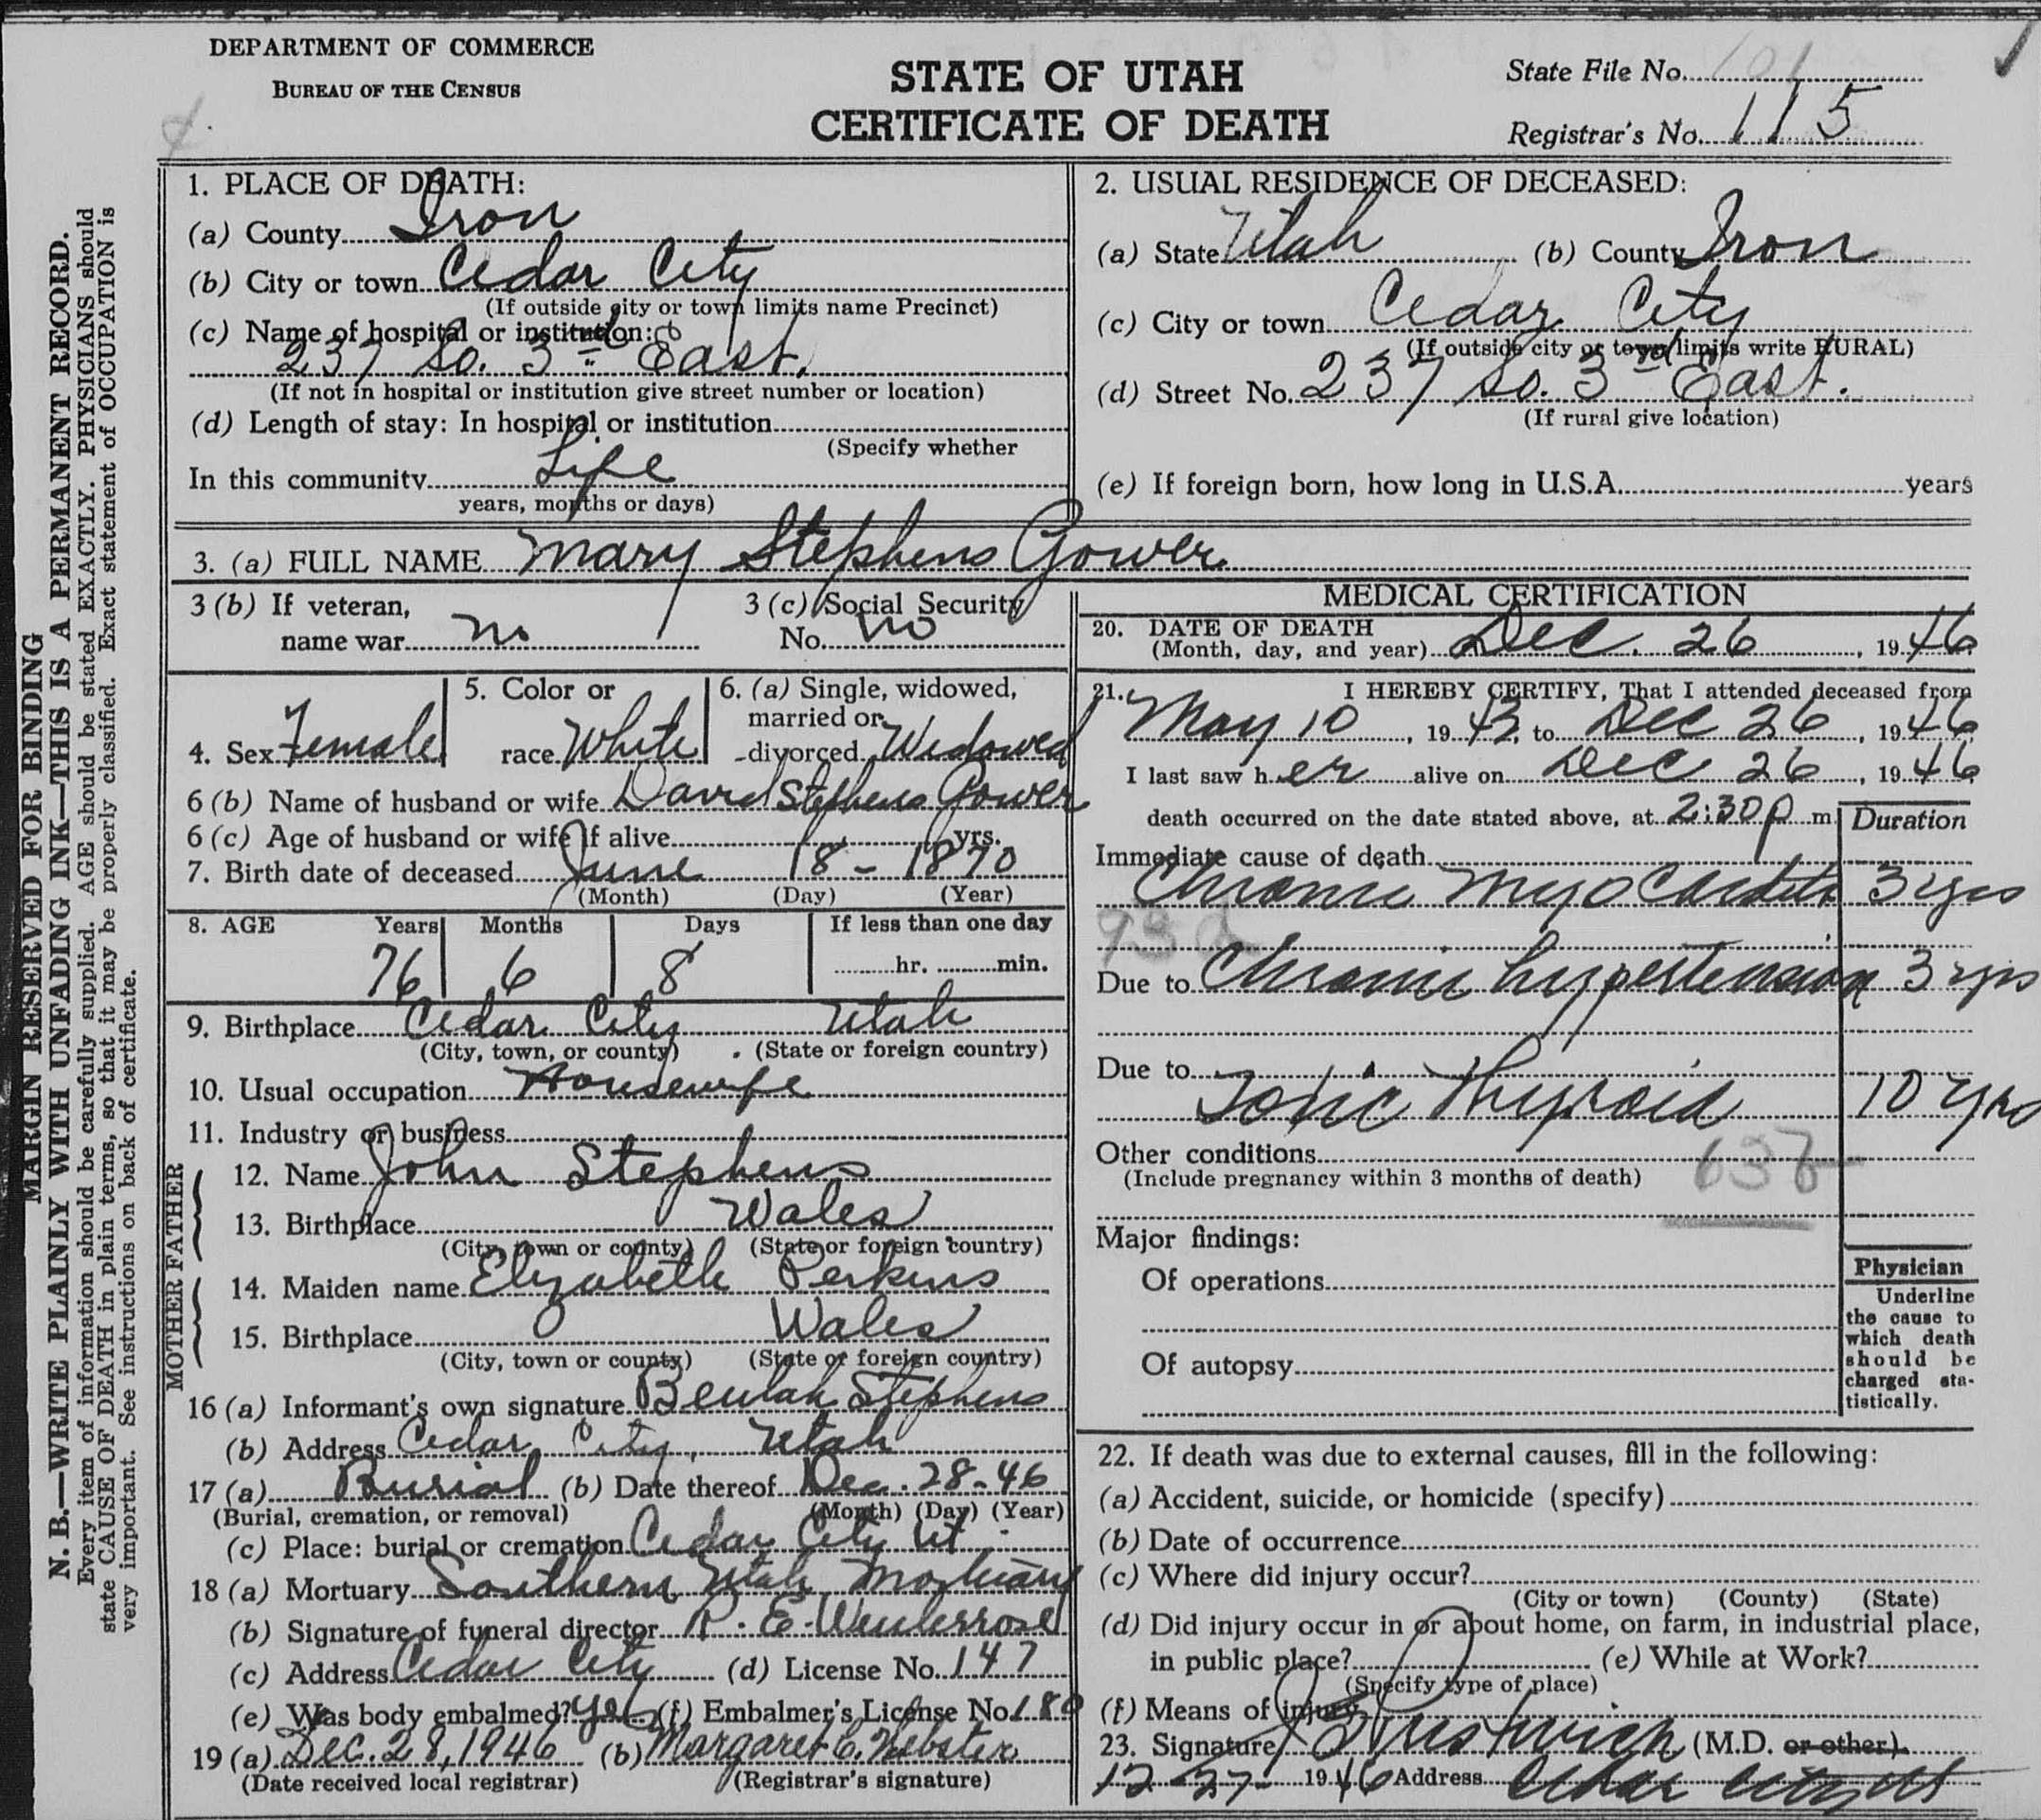 DEPARTMENT OF COMMERCE
BUREAU OF THE CENSUS
STATE OF UTAH
CERTIFICATE OF DEATH
State File No. 101
Registrar's No. 115
MARGIN RESERVED FOR BINDING
N. B.—WRITE PLAINLY WITH UNFADING INK—THIS IS A PERMANENT RECORD.
Every item of information should be carefully supplied. AGE should be stated EXACTLY. PHYSICIANS should
state CAUSE OF DEATH in plain terms, so that it may be properly classified. Exact statement of OCCUPATION is
very important. See instructions on back of certificate.
1. PLACE OF DEATH:
(a) County Iron
(b) City or town Cedar City
(If outside city or town limits name Precinct)
(c) Name of hospital or institution:
237 So. 3rd East.
(If not in hospital or institution give street number or location)
(d) Length of stay: In hospital or institution
(Specify whether
In this community Life
years, months or days)
2. USUAL RESIDENCE OF DECEASED:
(a) State Utah (b) County Iron
(c) City or town Cedar City
(If outside city or town limits write RURAL)
(d) Street No. 237 So. 3rd East.
(If rural give location)
(e) If foreign born, how long in U.S.A. years
3. (a) FULL NAME Mary Stephens Gower
3 (b) If veteran,
name war no
3 (c) Social Security
No. no
4. Sex Female
5. Color or
race White
6. (a) Single, widowed,
married or
divorced Widowed
6 (b) Name of husband or wife David Stephens Gower
6 (c) Age of husband or wife if alive yrs.
7. Birth date of deceased June 18 - 1870
(Month) (Day) (Year)
8. AGE Years Months Days If less than one day
76 6 8 hr. min.
9. Birthplace Cedar City Utah
(City, town, or county) (State or foreign country)
10. Usual occupation Housewife
11. Industry or business
FATHER
12. Name John Stephens
13. Birthplace Wales
(City, town or county) (State or foreign country)
MOTHER
14. Maiden name Elizabeth Perkins
15. Birthplace Wales
(City, town or county) (State or foreign country)
16 (a) Informant's own signature Beulah Stephens
(b) Address Cedar City, Utah
17 (a) Burial (b) Date thereof Dec. 28-46
(Burial, cremation, or removal) (Month) (Day) (Year)
(c) Place: burial or cremation Cedar City Ut.
18 (a) Mortuary Southern Utah Mortuary
(b) Signature of funeral director R. E.
(c) Address Cedar City (d) License No. 147
(e) Was body embalmed? Yes (f) Embalmer's License No. 180
19 (a) Dec. 28, 1946 (b) Margaret C. Webster
(Date received local registrar) (Registrar's signature)
MEDICAL CERTIFICATION
20. DATE OF DEATH
(Month, day, and year) Dec. 26, 1946
21. I HEREBY CERTIFY, That I attended deceased from
May 10, 1943, to Dec 26, 1946
I last saw her alive on Dec 26, 1946
death occurred on the date stated above, at 2:30 p m.
Duration
Immediate cause of death
Chronic Myocarditis 3 yrs
93d
Due to Chronic hypertension 3 yrs
Due to
Toxic Thyroid 10 yrs
Other conditions
(Include pregnancy within 3 months of death)
Major findings:
Of operations
Of autopsy
Physician
Underline
the cause to
which death
should be
charged sta-
tistically.
22. If death was due to external causes, fill in the following:
(a) Accident, suicide, or homicide (specify)
(b) Date of occurrence
(c) Where did injury occur?
(City or town) (County) (State)
(d) Did injury occur in or about home, on farm, in industrial place,
in public place? (e) While at Work?
(Specify type of place)
(f) Means of injury
23. Signature Prestwich (M.D. or other)
12-27- 1946 Address Cedar City Ut